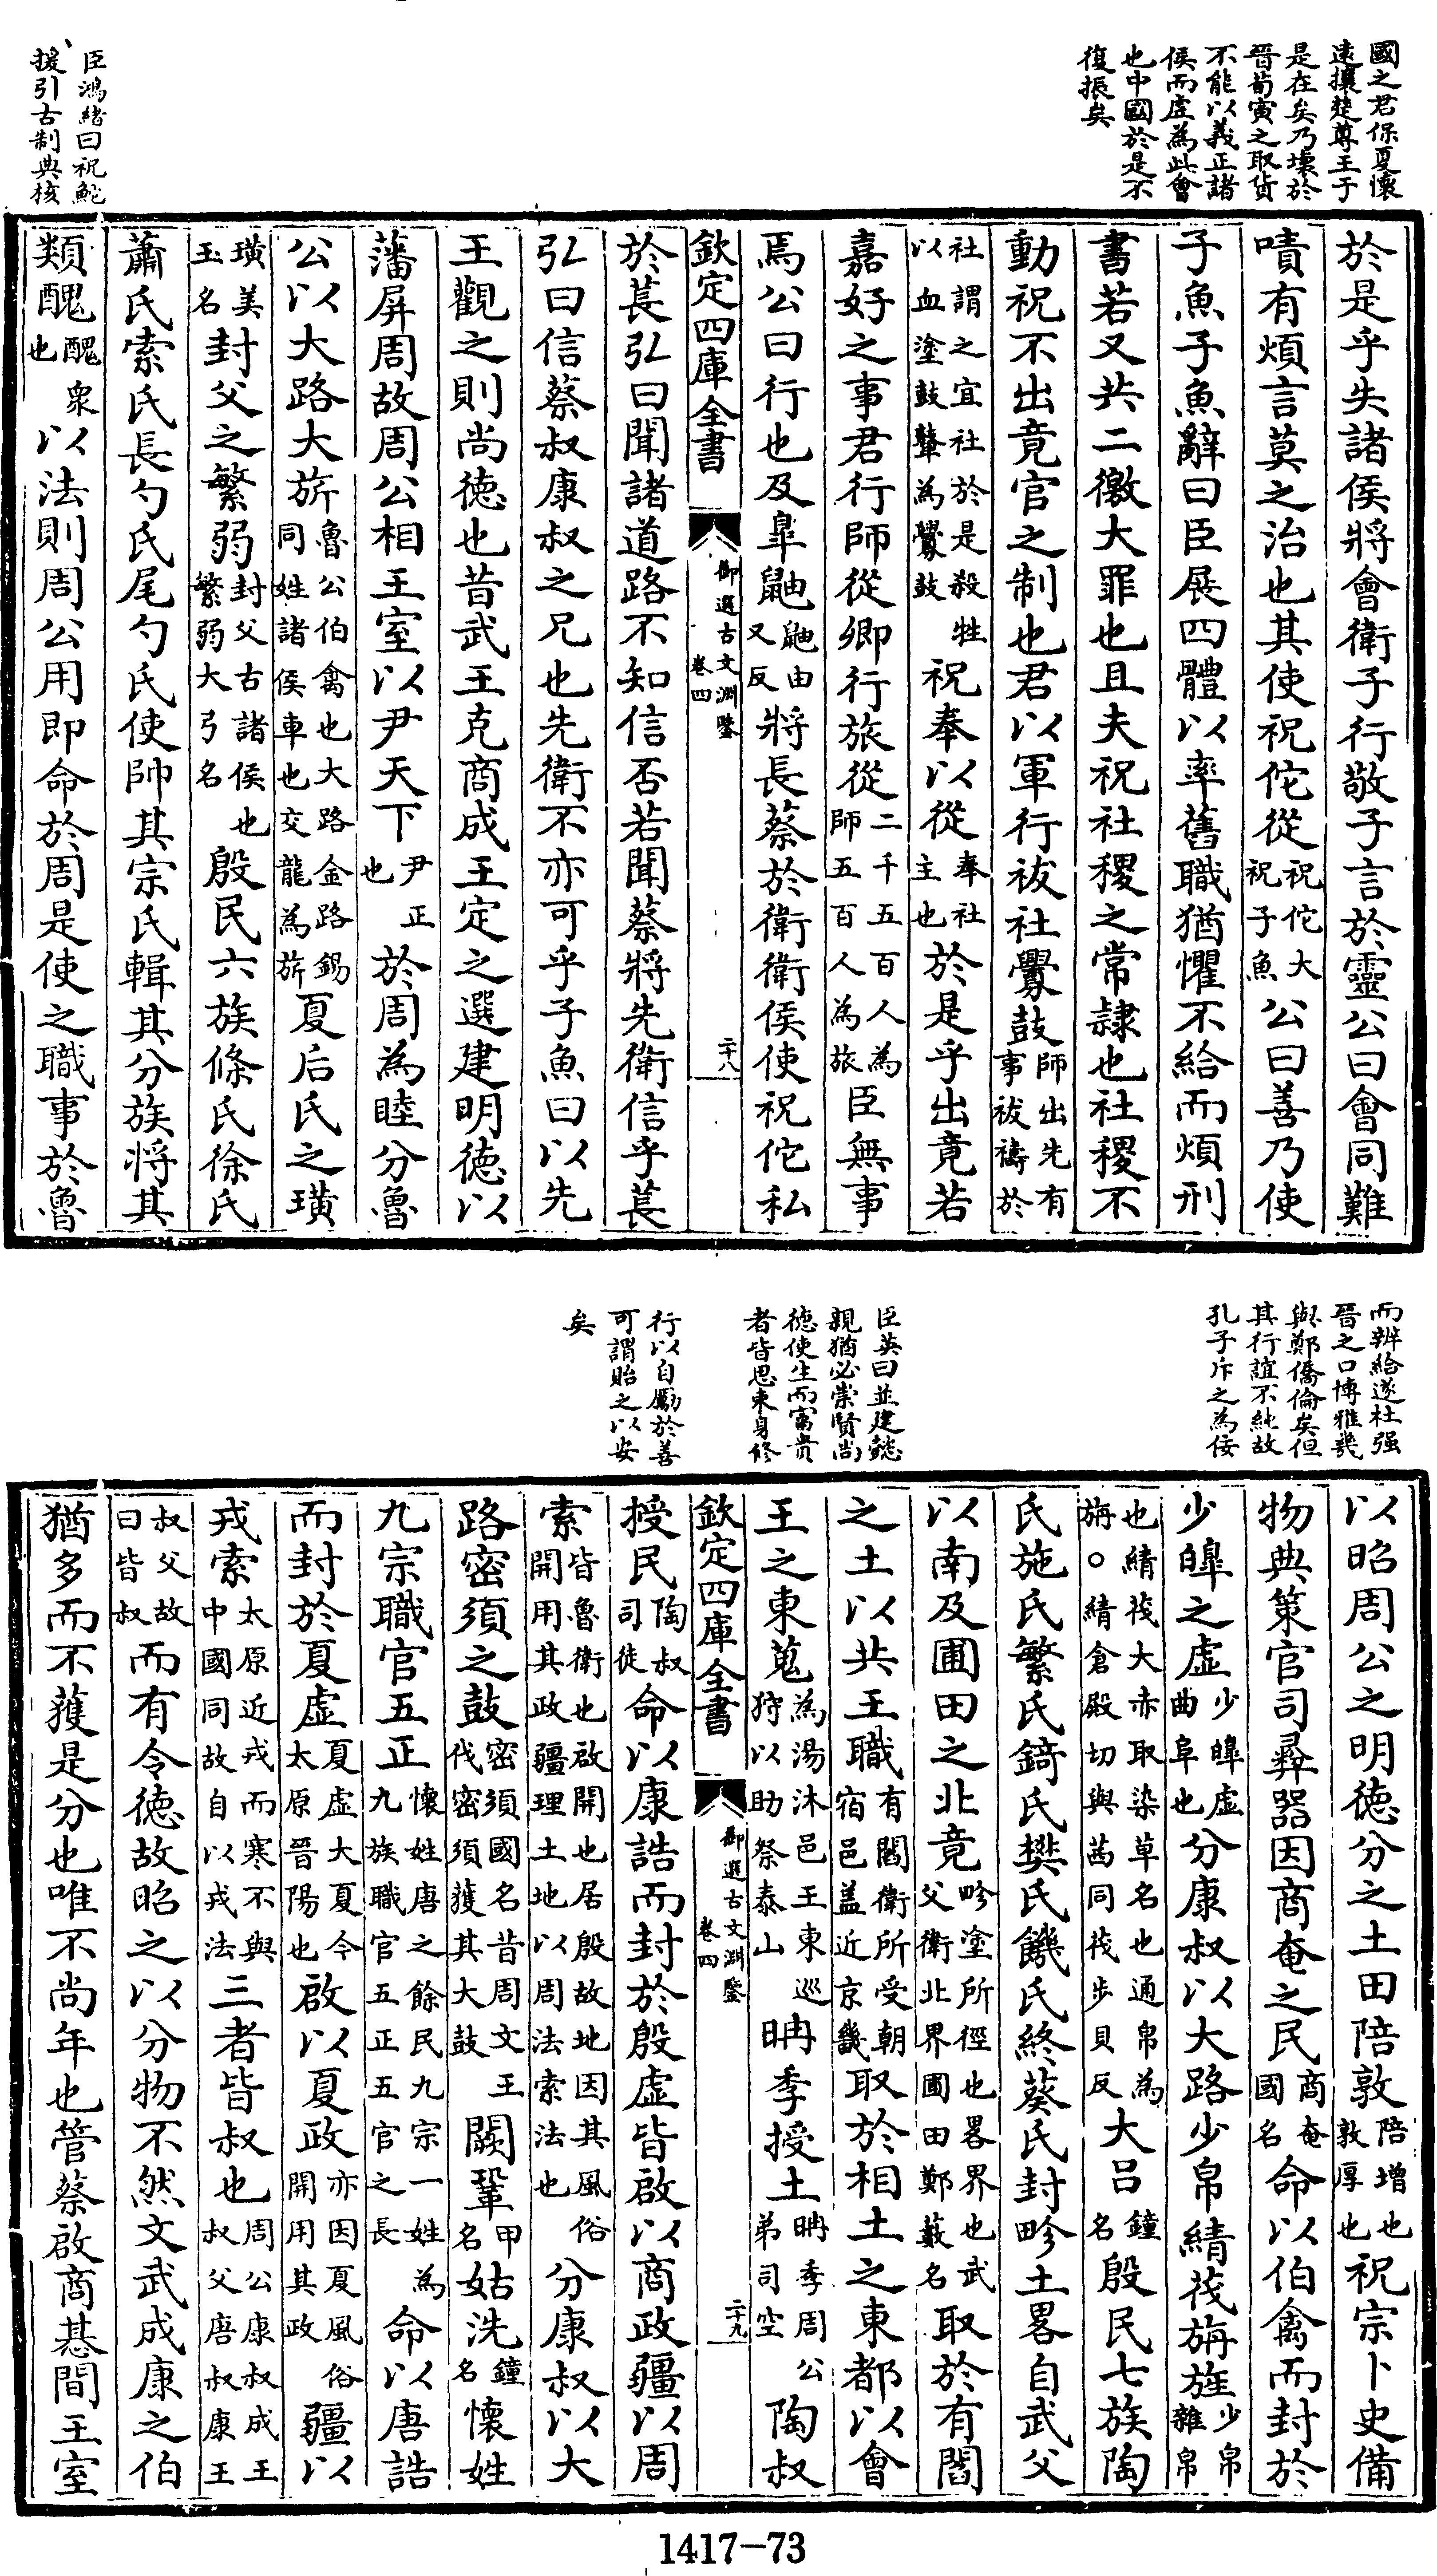 國之君保夏懷
遠攘楚尊王于
是在矣乃壞於
晉荀寅之取貨
不能以義正諸
侯而虛為此會
也中國於是不
復振矣
臣鴻緒曰祝鮀
援引古制典核
於是乎失諸侯將會衛子行敬子言於靈公曰會同難
嘖有煩言莫之治也其使祝佗從祝佗大祝子魚公曰善乃使
子魚子魚辭曰臣展四體以率舊職猶懼不給而煩刑
書若又共二徼大罪也且夫祝社稷之常隸也社稷不
動祝不出竟官之制也君以軍行祓社釁鼓師出先有事祓禱於
社謂之宜社於是殺牲以血塗鼓鼙為釁鼓祝奉以從奉社主也於是乎出竟若
嘉好之事君行師從卿行旅從二千五百人為師五百人為旅臣無事
焉公曰行也及臯鼬鼬由又反將長蔡於衛衛侯使祝佗私
欽定四庫全書 御選古文淵鑒 卷四 二十八
於萇弘曰聞諸道路不知信否若聞蔡將先衛信乎萇
弘曰信蔡叔康叔之兄也先衛不亦可乎子魚曰以先
王觀之則尚德也昔武王克商成王定之選建明德以
藩屏周故周公相王室以尹天下尹正也於周為睦分魯
公以大路大旂魯公伯禽也大路金路錫同姓諸侯車也交龍為旂夏后氏之璜
璜美玉名封父之繁弱封父古諸侯也繁弱大弓名殷民六族條氏徐氏
蕭氏索氏長勺氏尾勺氏使帥其宗氏輯其分族將其
類醜醜衆也以法則周公用即命於周是使之職事於魯
而辨給遂杜强
晉之口博雅幾
與鄭僑倫矣但
其行誼不純故
孔子斥之為佞
臣英曰並建懿
親猶必崇賢尚
德使生而富貴
者皆思束身修
行以自勵於善
可謂貽之以安
矣
以昭周公之明德分之土田陪敦陪增也敦厚也祝宗卜史備
物典策官司彞器因商奄之民商奄國名命以伯禽而封於
少皥之虛少皥虛曲阜也分康叔以大路少帛綪茷旃旌少帛雜帛
也綪茷大赤取染草名也通帛為旃○綪倉殿切與茜同茷步貝反大呂鐘名殷民七族陶
氏施氏繁氏錡氏樊氏饑氏終葵氏封畛土畧自武父
以南及圃田之北竟畛塗所徑也畧界也武父衛北界圃田鄭藪名取於有閻
之土以共王職有閻衛所受朝宿邑盖近京畿取於相土之東都以會
王之東蒐為湯沐邑王東巡狩以助祭泰山聃季授土聃季周公弟司空陶叔
欽定四庫全書 御選古文淵鑒 卷四 二十九
授民陶叔司徒命以康誥而封於殷虛皆啟以商政疆以周
索皆魯衛也啟開也居殷故地因其風俗開用其政疆理土地以周法索法也分康叔以大
路密須之鼓密須國名昔周文王伐密須獲其大鼓闕鞏甲名姑洗鐘名懷姓
九宗職官五正懷姓唐之餘民九宗一姓為九族職官五正五官之長命以唐誥
而封於夏虛夏虛大夏今太原晉陽也啟以夏政亦因夏風俗開用其政疆以
戎索太原近戎而寒不與中國同故自以戎法三者皆叔也周公康叔成王叔父唐叔康王
叔父故曰皆叔而有令德故昭之以分物不然文武成康之伯
猶多而不獲是分也唯不尚年也管蔡啟商惎間王室
1417-73